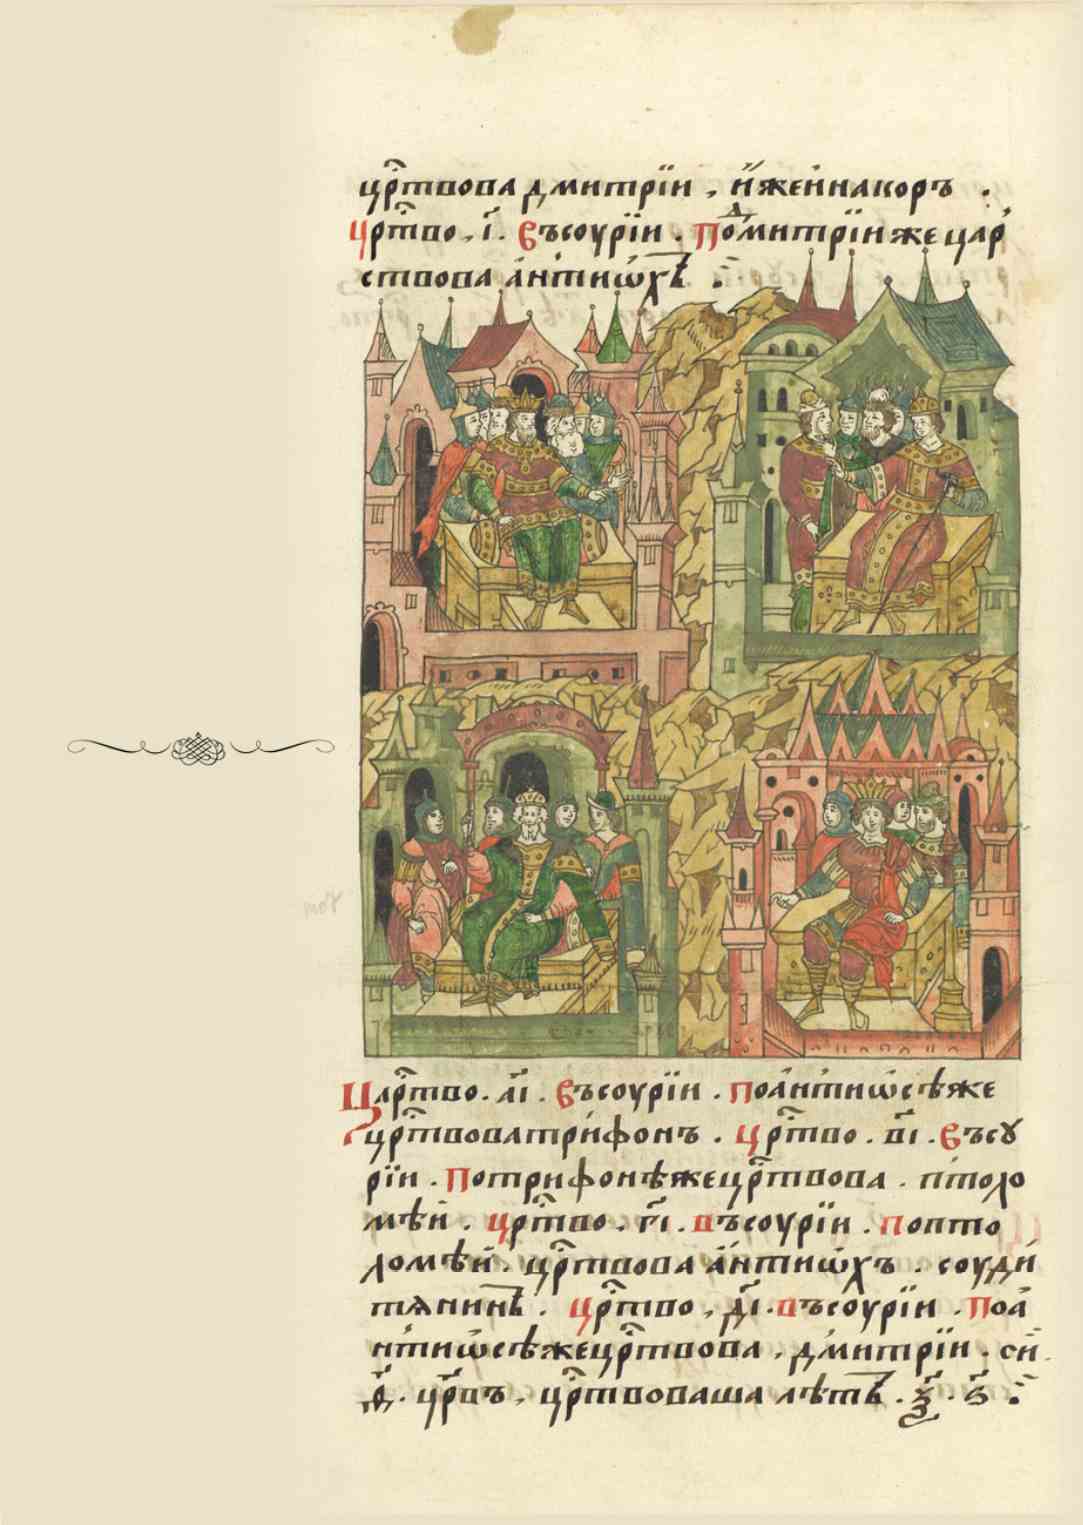 црⷭ҇твова дмитрїи , и҆́же и҆ никоръ .
црⷭ҇тво . і҃ . въ соурїи . По дмитрїи же цар
ствова а҆нтио҆́хъ :
Царⷭ҇тво . а҃і . въ соурїи . по а҆нтио҆сѣ же
црⷭ҇твова трифонъ . црⷭ҇тво . в҃і . въ сꙋ
рїи . По трифонѣ же црⷭ҇твова . птоло
мѣй . црⷭ҇тво . г҃і . въ соурїи . по пто
ломѣи . црⷭ҇твова а҆нтио҆́хъ . соуди
тянинъ . црⷭ҇тво , д҃і . въ соурїи . По а҆
нтио҆сѣ же црⷭ҇твова , дмитрїи . сїи
д҃і . цр҃въ , црⷭ҇твоваша лѣтъ . ѯ҃ . ѕ҃ :